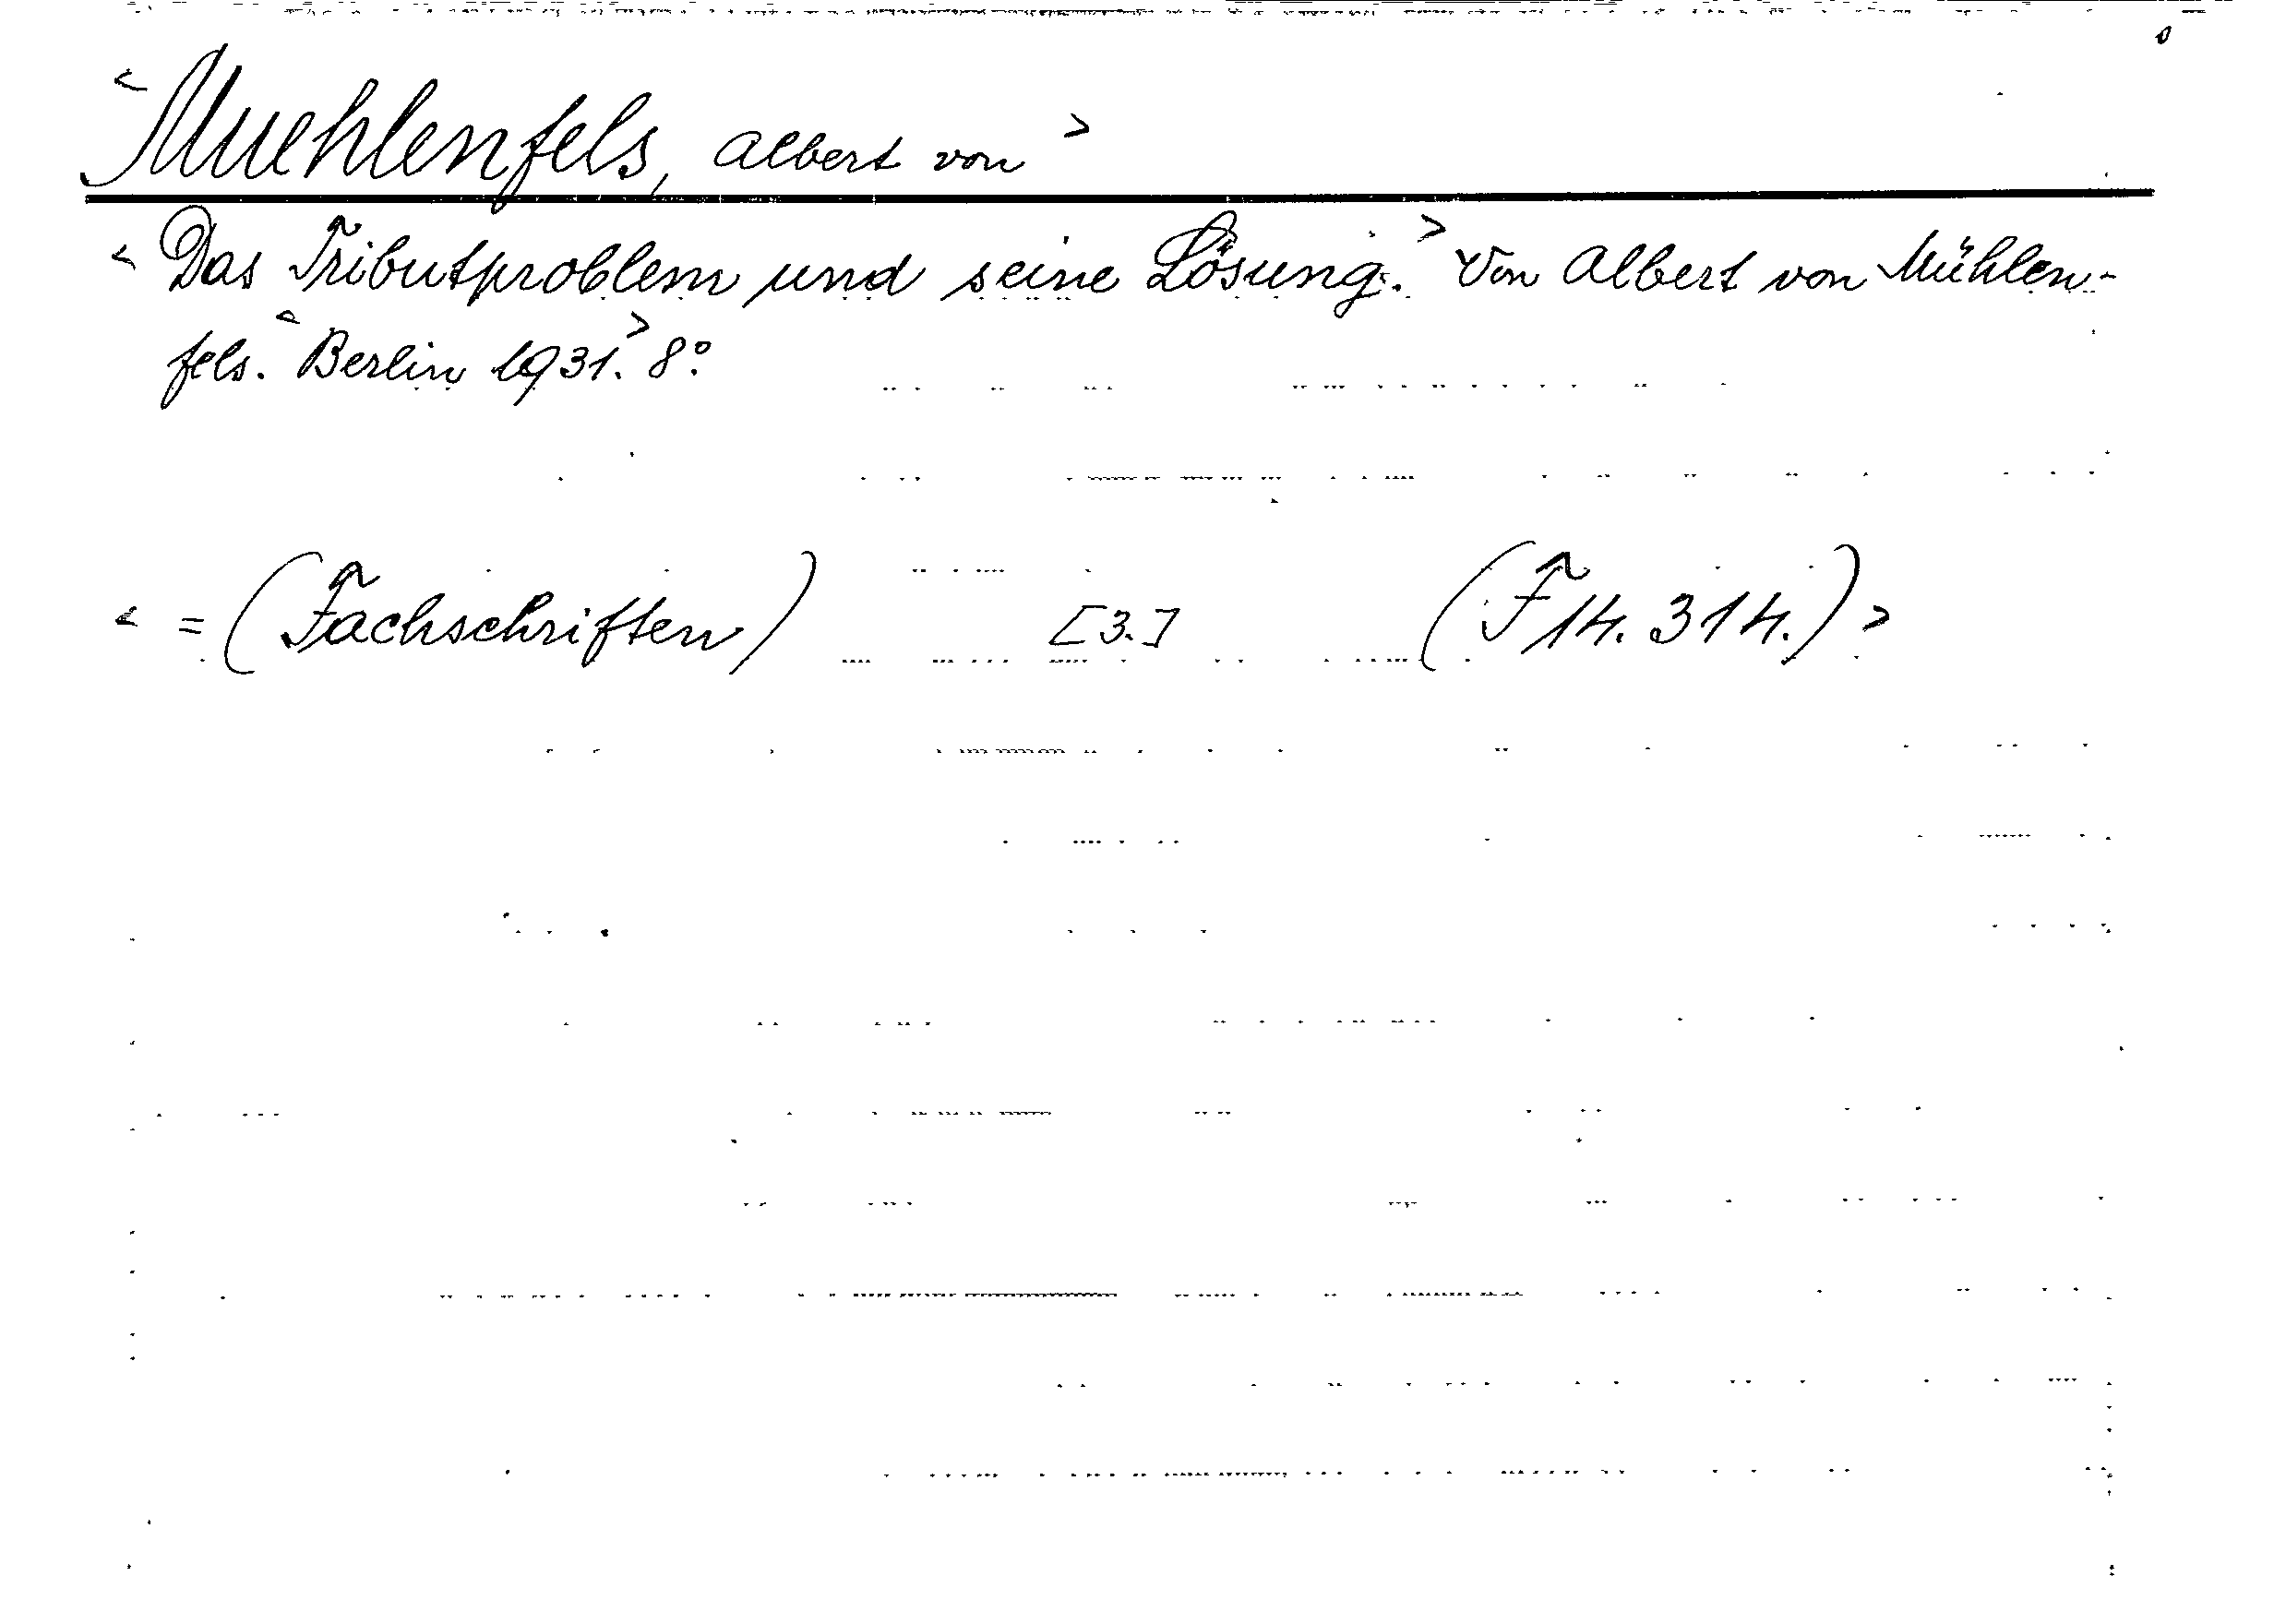 < Muehlenfels, Albert von >
< Das Tributproblem und seine Lösung. > Von Albert von Mühlen-
fels. < Berlin 1931. > 8°.
< = (Fachschriften) [3.] (F 14. 314.) >